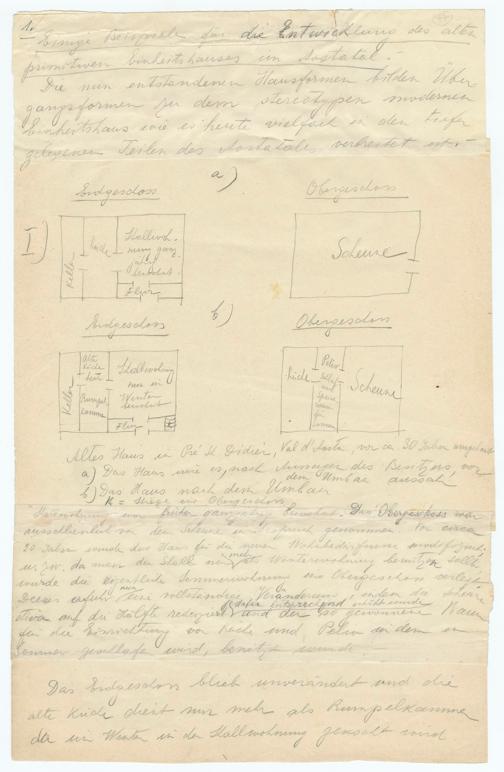 1.
Einige Beispiele für die Entwicklung des alten
primitiven Einheitshauses im Aostatal.
Die nun entstandenen Hausformen bilden Über
gangsformen zu dem stereotypen modernen
Einheitshaus wie es heute vielfach in den tiefer
gelegenen Teilen des Aostatales verbreitet ist.
a)
Erdgeschoss
Obergeschoss
I)
Keller
Küche
Stallwoh-
nung ganz
jährig
benützt
Flur
Scheune
b)
Erdgeschoss
Obergeschoss
Keller
Alte
Küche
Rumpel
kammer
Stallwohnung
nur im
Winter
benützt
Flur
K
Küche
Peilou
Scheune
Altes Haus in Pré St Didier, Val d'Aosta, vor ca 30 Jahren umgebaut
a) Das Haus wie es, nach Aussagen des Besitzers, vor
dem Umbau aussah
b) Das Haus nach dem Umbau
K = Stiege ins Obergeschoss
war früher ganzjährig benützt. Das Obergeschoss war
ausschliesslich von der Scheune in Anspruch genommen. Vor circa
30 Jahren wurde das Haus für die neuen Wohnbedürfnisse
u. zw. da man den Stall nur mehr als Winterwohnung benützen sollte
wurde die eigentliche Sommerwohnung ins Obergeschoss verlegt.
Dieses erfuhr nun eine vollständige Veränderung, indem die Scheune
etwa auf die Hälfte reduziert und der so gewonnene Raum
für die Einrichtung von Küche und Peilou in dem im
Sommer geschlafen wird, benützt wurde.
Das Erdgeschoss blieb unverändert und die
alte Küche dient nur mehr als Rumpelkammer
da im Winter in der Stallwohnung gekocht wird